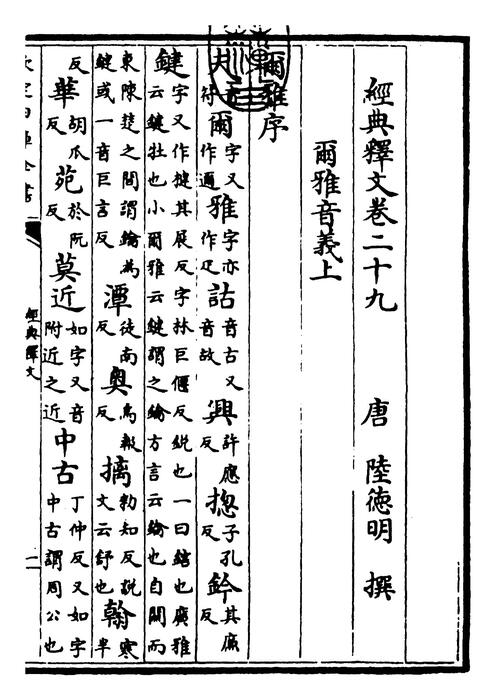 經典釋文卷二十九 唐 陸德明 撰
爾雅音義上
爾雅序
夫音符爾字又作邇雅字亦作疋詁音古又音故興許應反揔子孔反鈐其廉反
鍵字又作揵其展反字林巨偃反鋭也一曰鎋也廣雅云鍵牡也小爾雅云鍵謂之鑰方言云鑰也自關而
東陳楚之間謂鑰為鍵或一音巨言反潭徒南反奧烏報反摛勑知反説文云舒也翰寒半
反華胡瓜反苑於阮反莫近如字又音附近之近中古丁仲反又如字中古謂周公也
欽定四庫全書 經典釋文 一